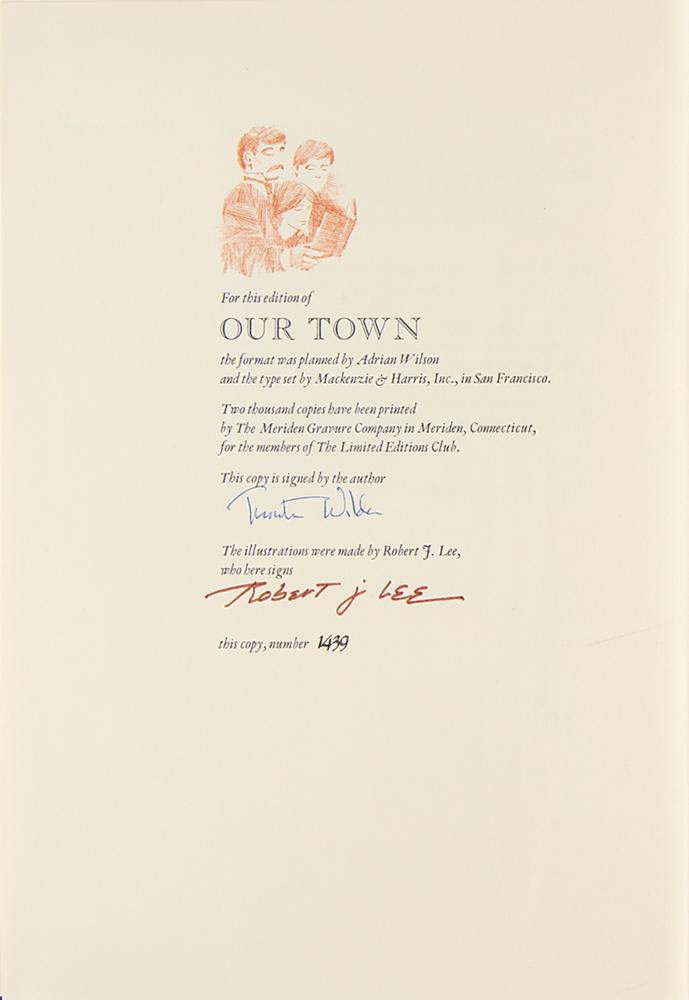 For this edition of
OUR TOWN
the format was planned by Adrian Wilson
and the type set by Mackenzie & Harris, Inc., in San Francisco.
Two thousand copies have been printed
by The Meriden Gravure Company in Meriden, Connecticut,
for the members of The Limited Editions Club.
This copy is signed by the author
Thornton Wilder
The illustrations were made by Robert J. Lee,
who here signs
Robert j LEE
this copy, number 1439